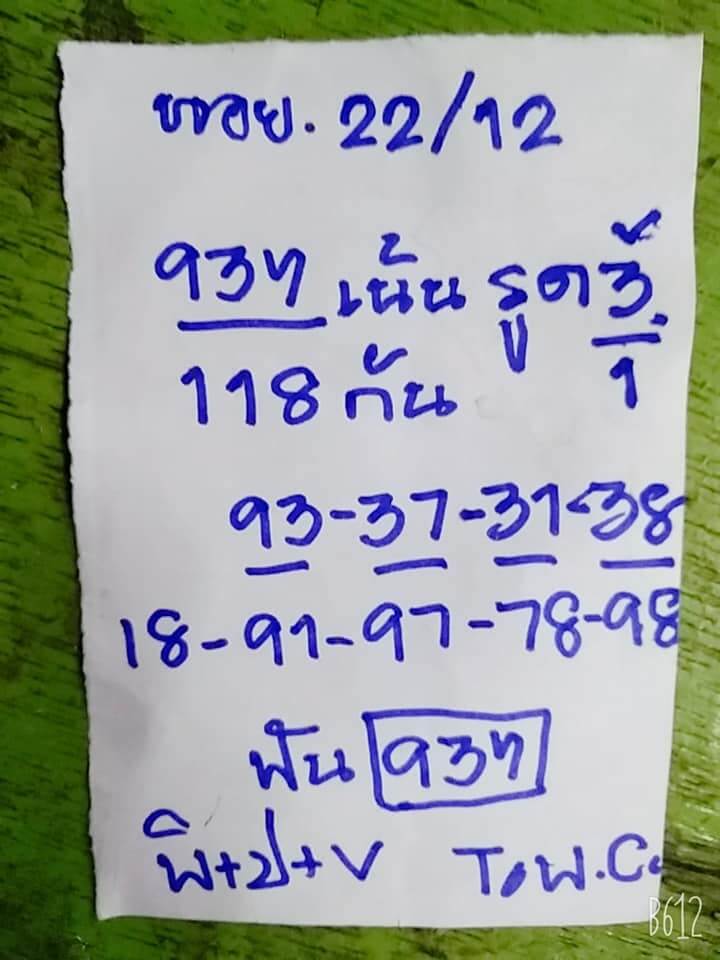 ฮานอย. 22/12
937 เน้น รูด 3
118 กัน 1
93-37-31-38
18-91-97-78-98
ฟัน 937
พิ+ป+V T.พ.C.
B612